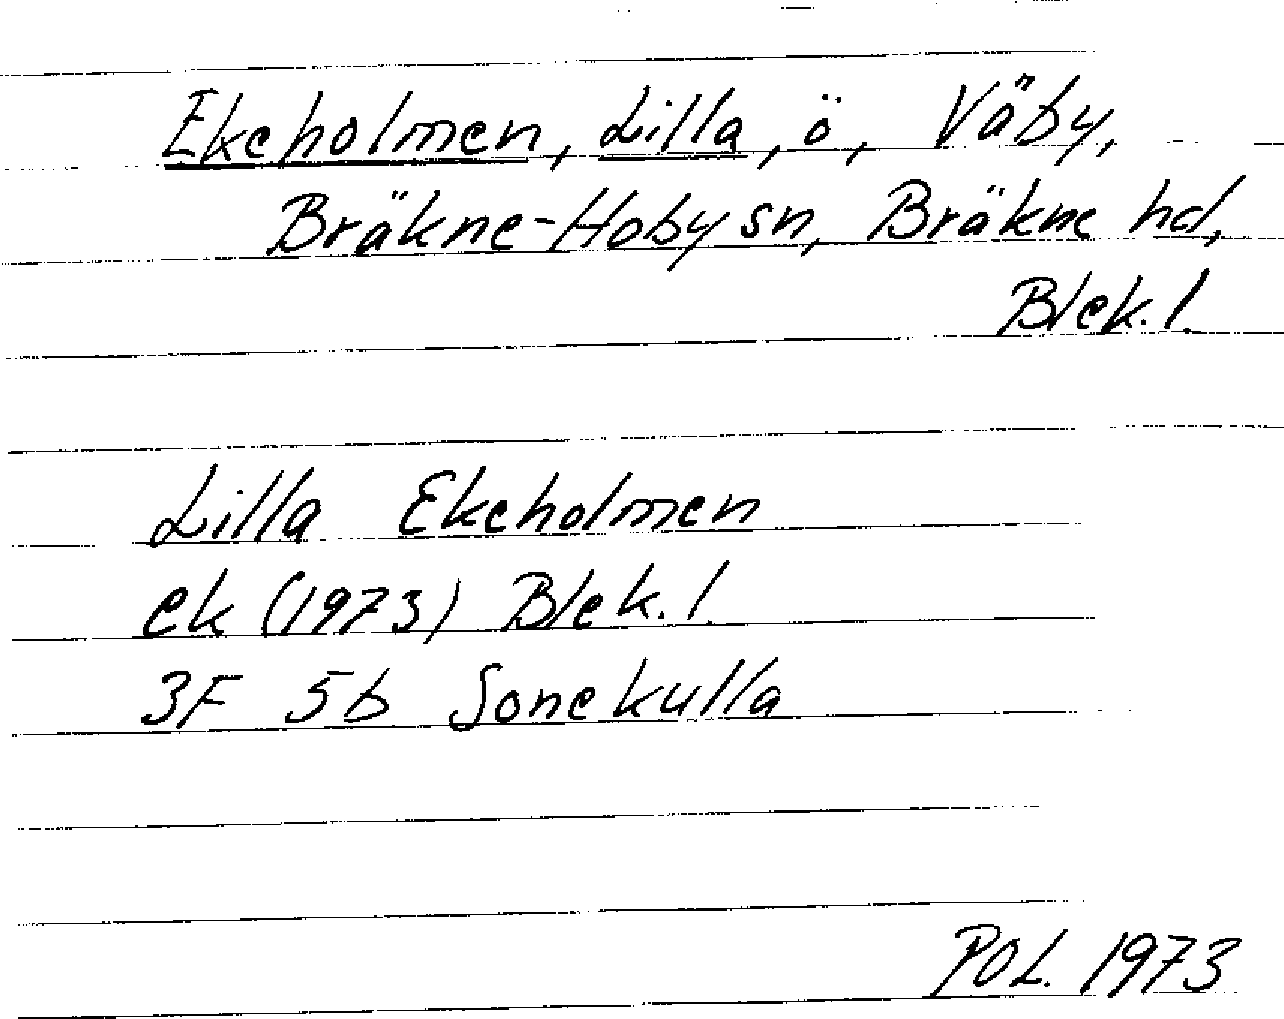 Ekeholmen, Lilla, ö, Väby,
Bräkne-Hoby sn, Bräkne hd,
Blek. l.
Lilla Ekeholmen
ek (1973) Blek. l.
3F 5b Sonekulla
POL. 1973